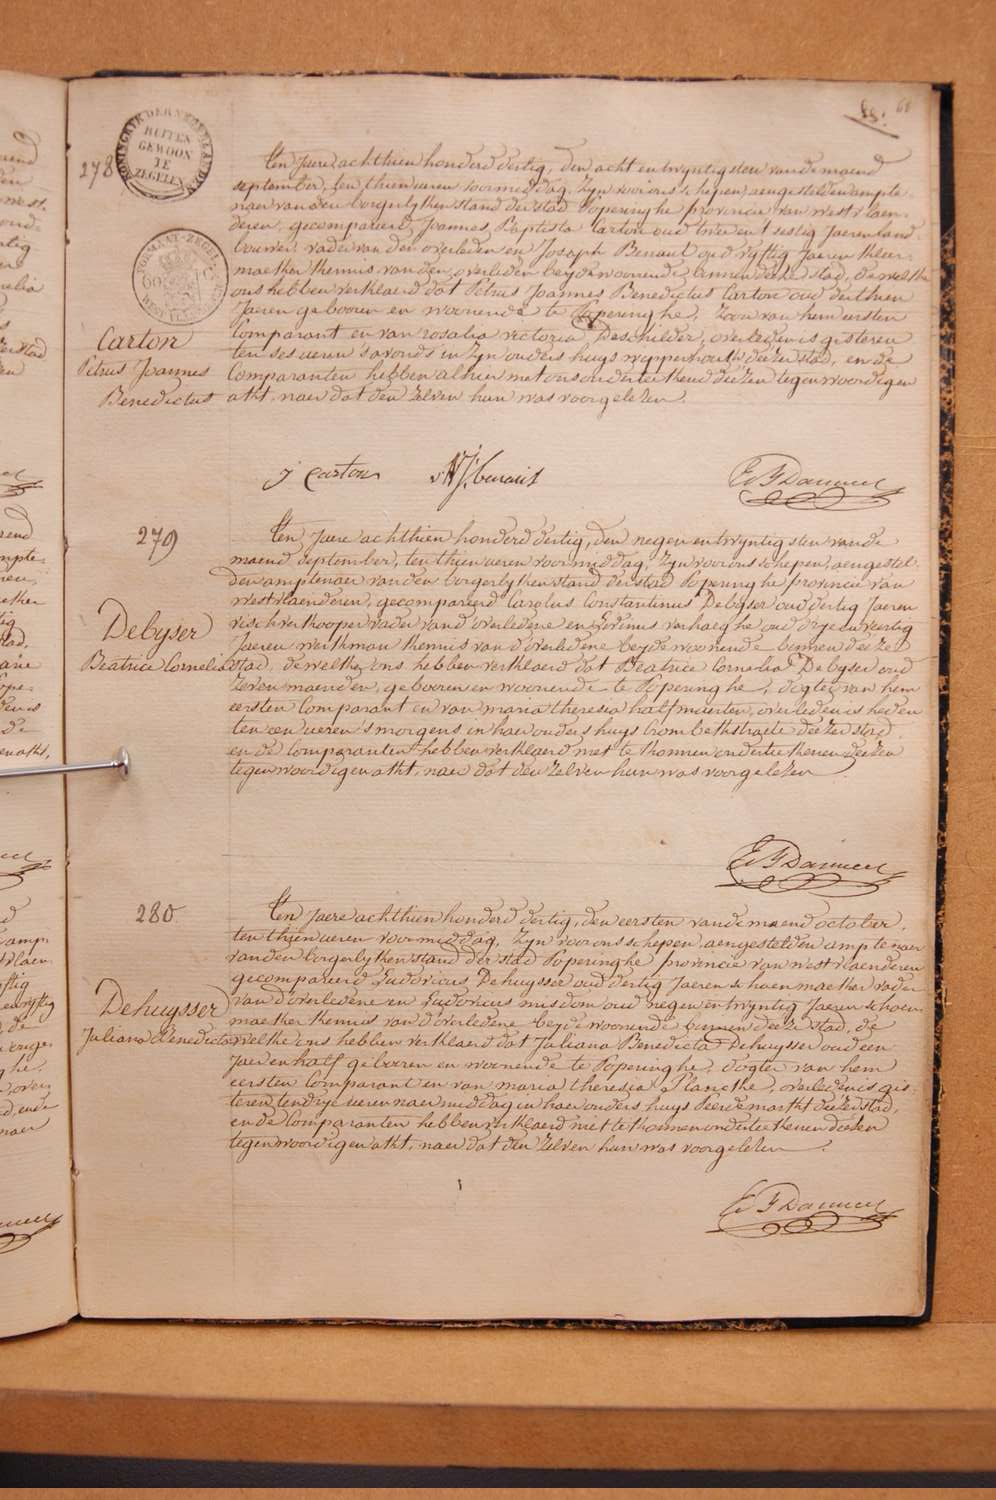 68
278
KONINGRYK DER NEDERLANDEN
BUITEN
GEWOON
TE
ZEGELEN
FORMAAT-ZEGEL
WEST VLAENDEREN
Carton
Petrus Joannes
Benedictus
Ten Jaere achthien honderd dertig, den acht en twyntigsten van de maend
september, ten thien ueren voormiddag. Zyn voor ons schepen, aengestelden ampte
naer van den borgerlyken stand der stad Poperinghe provincie van westvlaen-
deren, gecompareerd Joannes Baptista Carton oud twee en t sestig Jaeren land
bouwer, vader van den overleden en Joseph Benaut oud vyftig Jaeren kleer-
maeker kennis van den overleden beyde woonende binnen deze stad, de welke
ons hebben verklaerd dat Petrus Joannes Benedictus Carton oud derthien
Jaeren gebooren en woonende te Poperinghe, Zoon van hem eersten
Comparant en van rosalia victoria Deschilder, overleden is gisteren
ten ses ueren s'avonds in zyn ouders huys wyppenhoutk deezer stad, en de
Comparanten hebben alhier met ons onderteekend deezen tegenwoordigen
akt, naer dat den zelven hun was voorgelezen.
J Carton
E F Danneel
279
Debyser
Beatrice Cornelia
Ten Jaere achthien honderd dertig, den negen en twyntigsten van de
maend september, ten thien ueren voormiddag, Zyn voor ons schepen, aengestel-
den amptenaer van den borgerlyken stand der stad Poperinghe provincie van
westvlaenderen, gecompareerd Carolus Constantinus Debyser oud dertig Jaeren
vischverkooper vader vand' overledene en verhaeghe oud dry en veertig
Jaeren werkman kennis van d'overledene beyde woonende binnen deezer
stad, de welke ons hebben verklaerd dat Beatrice Cornelia Debyser oud
zeven maenden, gebooren en woonende te Poperinghe, dogter van hem
eersten Comparant en van maria theresia halfmaerten, overleden is heden
ten een ueren s'morgens in haer ouders huys Crombekstraete deezer stad,
en de Comparanten hebben verklaerd niet te konnen onderteekenen deezen
tegenwoordigen akt, naer dat den zelven hun was voorgelezen.
E F Danneel
280
Dehuysser
Juliana Benedicta
Ten Jaere achthien honderd dertig, den eersten van de maend october,
ten thien ueren voormiddag, Zyn voor ons schepen, aengestelden amptenaer
van den borgerlyken stand der stad Poperinghe provincie van westvlaenderen
gecompareerd Ludovicus Dehuysser oud dertig Jaeren schoenmaeker vader
van d'overledene en Ludovicus misdom oud negen en twyntig Jaeren schoen-
maeker kennis van d'overledene beyde woonende binnen deeze stad, de
welke ons hebben verklaerd dat Juliana Benedicta Dehuysser oud een
Jaer en half gebooren en woonende te Poperinghe, dogter van hem
eersten Comparant en van maria theresia Plancke, overleden is gis-
teren ten dry ueren naermiddag in haer ouders huys Peerdemarkt deezer stad,
en de Comparanten hebben verklaerd niet te konnen onderteekenen deezen
tegenwoordigen akt, naer dat den zelven hun was voorgelezen.
E F Danneel